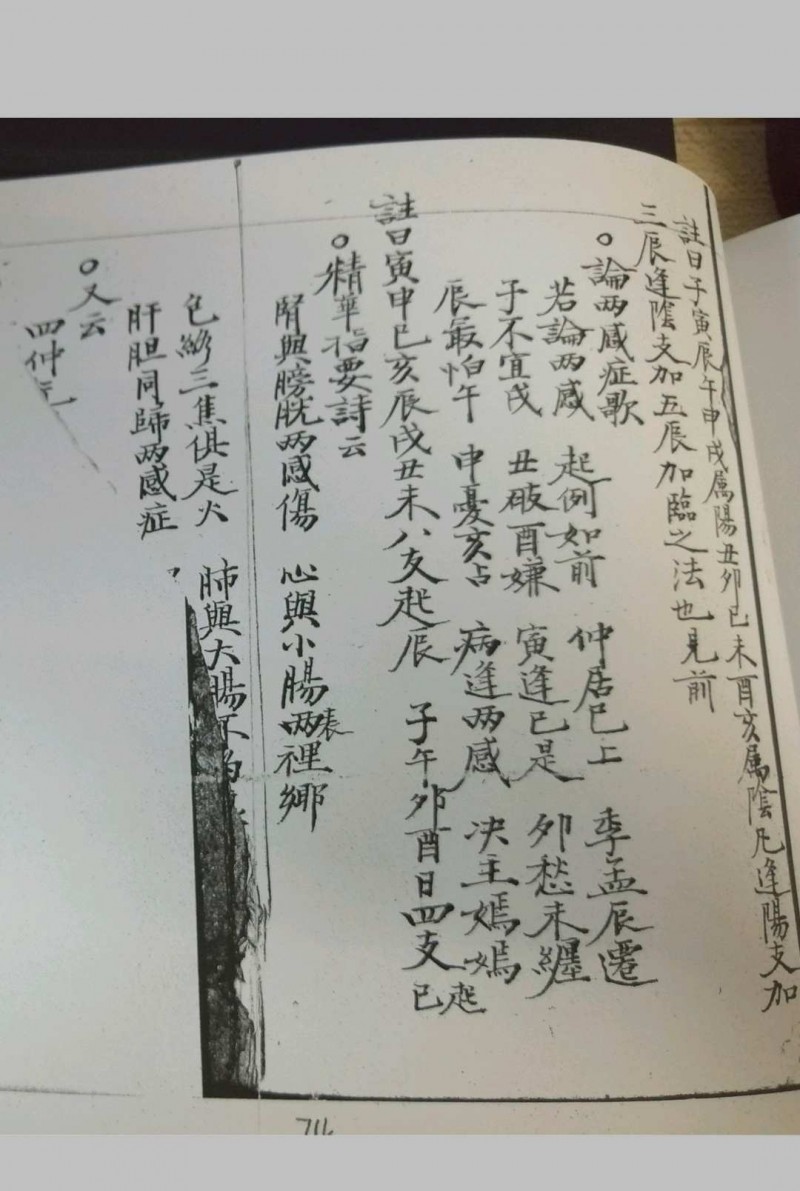 註曰子寅辰午申戌属陽丑卯巳未酉亥属陰凡逢陽支加
三辰逢陰支加五辰加臨之法也見前
○論两感症歌
若論两感 起例如前 仲居巳上 季孟辰遷
子不宜戌 丑破酉嫌 寅逢巳是 卯愁未纏
辰最怕午 申憂亥占 病逢两感 决主嫣嫣
註曰寅申巳亥辰戌丑未八支起辰 子午卯酉日四支起巳
○精華指要詩云
腎與膀胱两感傷 心與小腸两表裡鄉
包絡三焦俱是火 肺與大腸不
肝胆同歸两感症
○又云
四仲
714